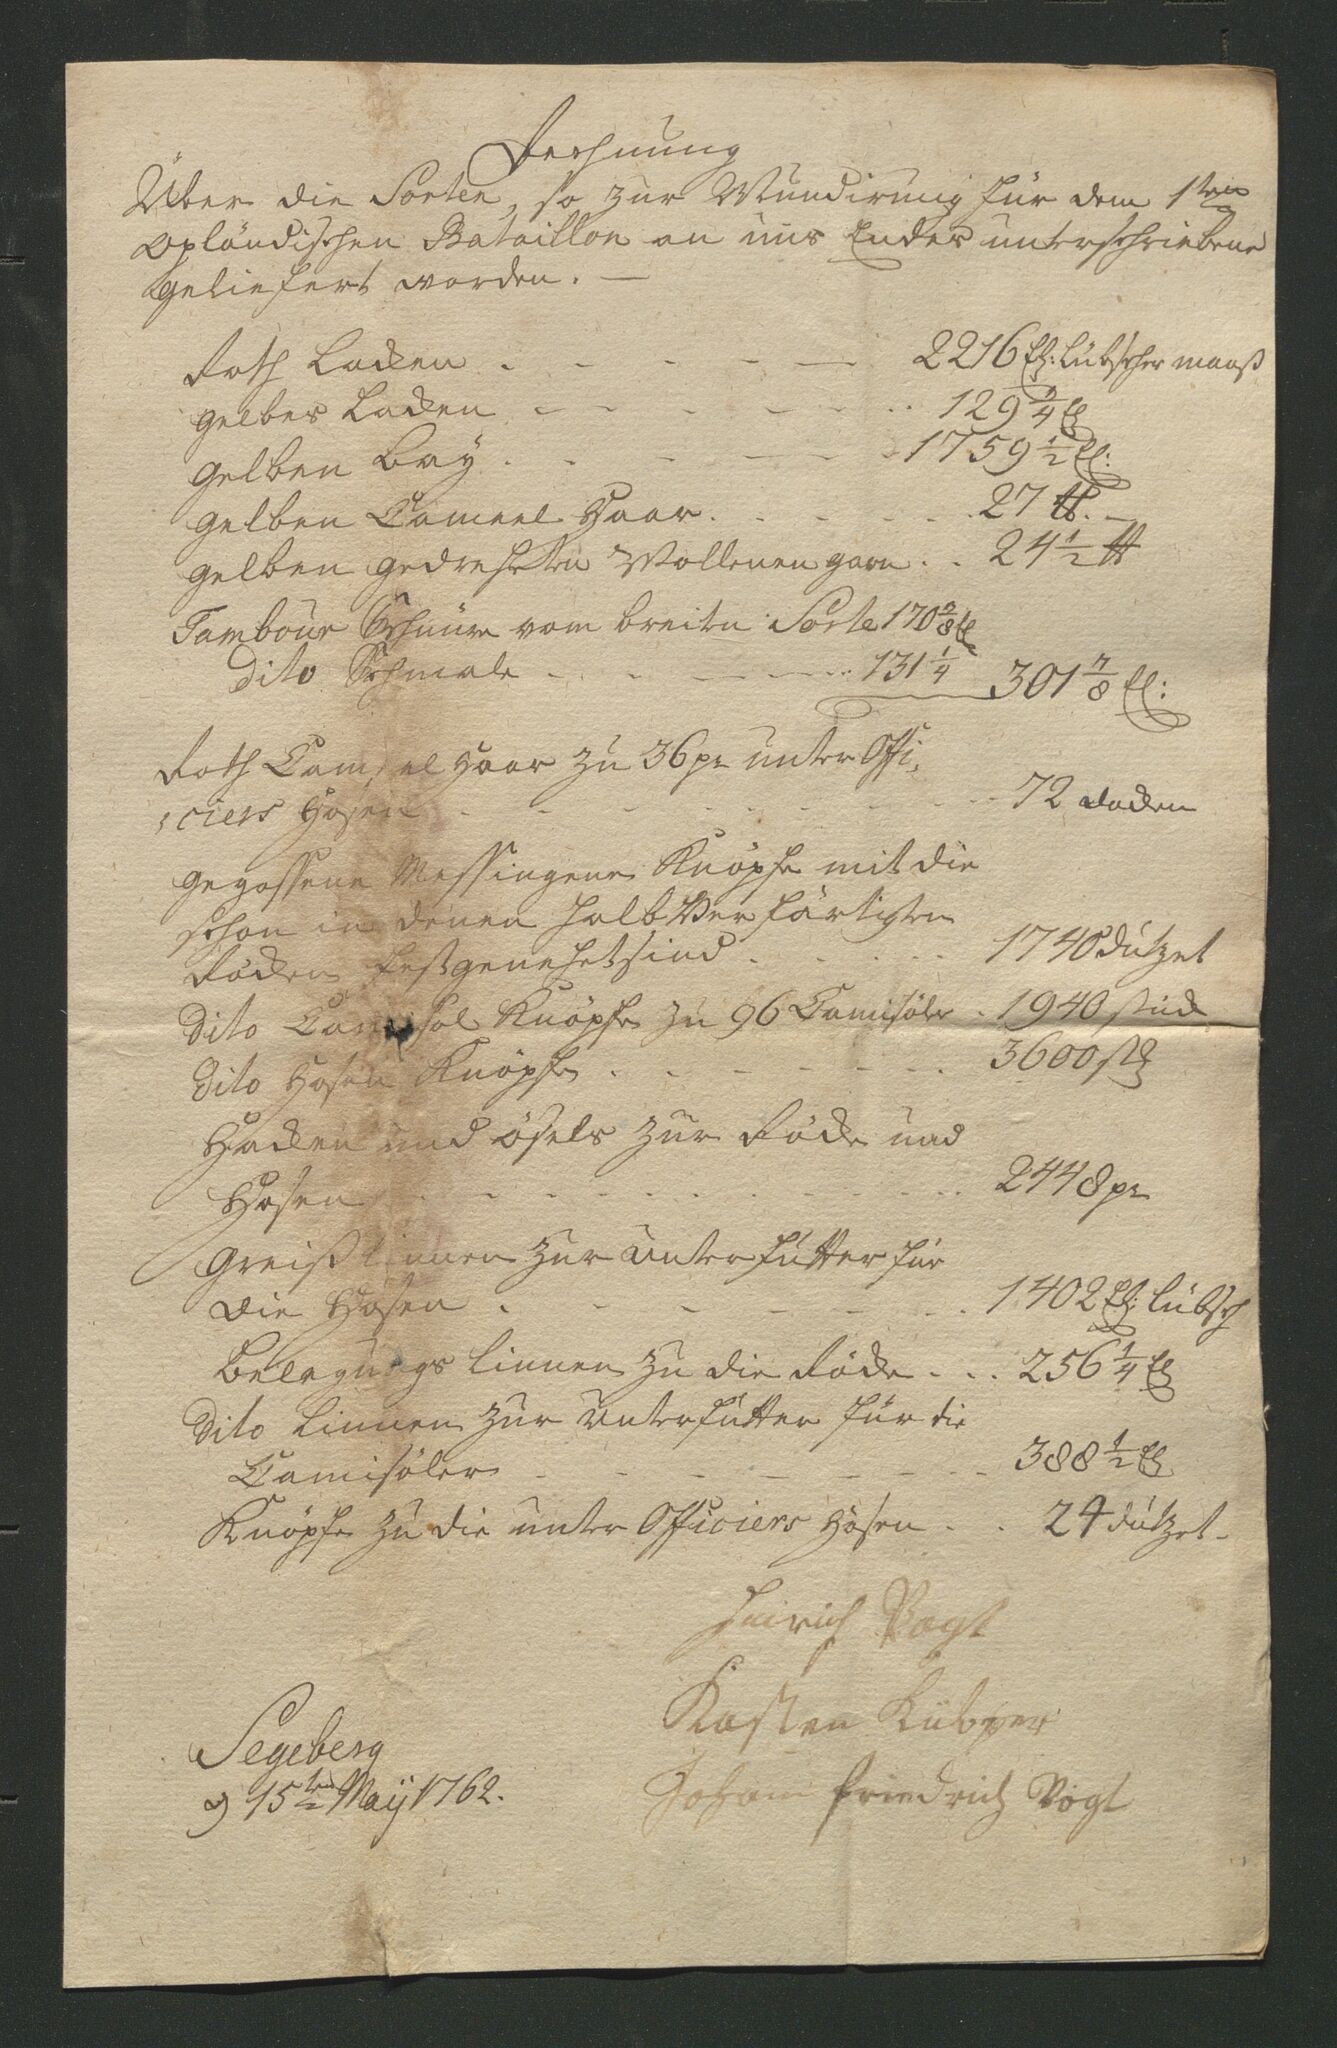 Rechnung
Über die Sorten, so zur Mundirung für dem 1sten
Opländischen Bataillon an uns Endes unterschriebene
geliefert worden. —
Roth Lacken . - - - — 2216 El: Lübscher maaß
gelbes Lacken - - - - - . . 129 3/4 El
gelben Bay . - - - — . 1759 1/2 El:
gelben Cameel Haar . - - - . . 27 ℔. —
gelben gedrehten Wollenen garn . . 24 1/2 ℔
Tambour Schnüre vom breiten Sorte 170 5/8 El
Dito Schmale - - - — . . 131 1/4 301 7/8 El:
Roth Cameel Haar zu 36 pr unter Offi-
ciers Hosen - - - - - - - 72 Locken
gegossene Messingene Knöpfe mit die
schon in denen halb Verfärtigten
Röcken festgenehet sind . - - - . 1740 dutzet
Dito Camisol Knöpfe zu 96 Camisöler . 1940 stück
Dito Hosen Knöpfe . - - - - - . 3600 stk
Hacken und ösels zur Röcke und
Hosen . - - - - - - - - . 2448 pr
Greiß linnen zur unterfutter für
die Hosen . - - - - - . 1402 El: lübsch
Belegungs linnen zu die Röcke . . . 256 1/4 El
Dito Linnen zur unterfutter für die
Camisöler - - - - - - - 388 1/2 El
Knöpfe zu die unter Officiers Hosen . . 24 dutzet -
Hinrich Vogt
Kasten
Segeberg
d 15ten Maij 1762.
Johann Friedrich Vogt